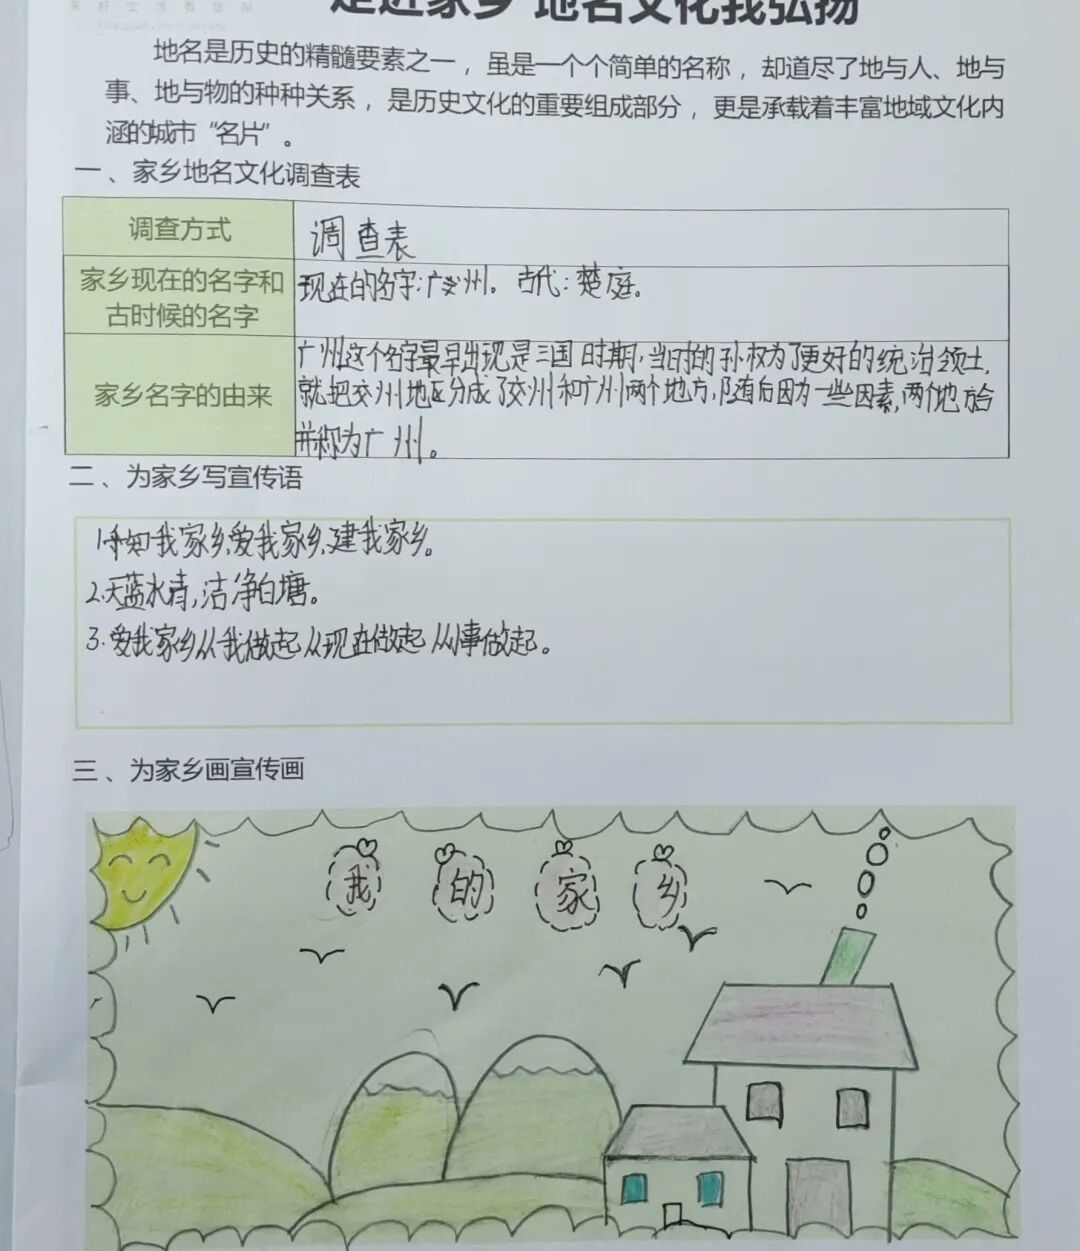 美好生活看信阳
走进家乡 地名文化我弘扬
地名是历史的精髓要素之一，虽是一个个简单的名称，却道尽了地与人、地与
事、地与物的种种关系，是历史文化的重要组成部分，更是承载着丰富地域文化内
涵的城市“名片”。
一、家乡地名文化调查表
调查方式
调查表
家乡现在的名字和
古时候的名字
现在的名字:广州。 古代:楚庭。
家乡名字的由来
广州这个名字最早出现是三国时期,当时的孙权为了更好的统治领土,
就把交州地区分成了交州和广州两个地方,随后因为一些因素,两个地方合
并称为广州。
二、为家乡写宣传语
1.知我家乡,爱我家乡,建我家乡。
2.天蓝水清,洁净白塘。
3.爱我家乡从我做起从现在做起从事做起。
三、为家乡画宣传画
我的家乡